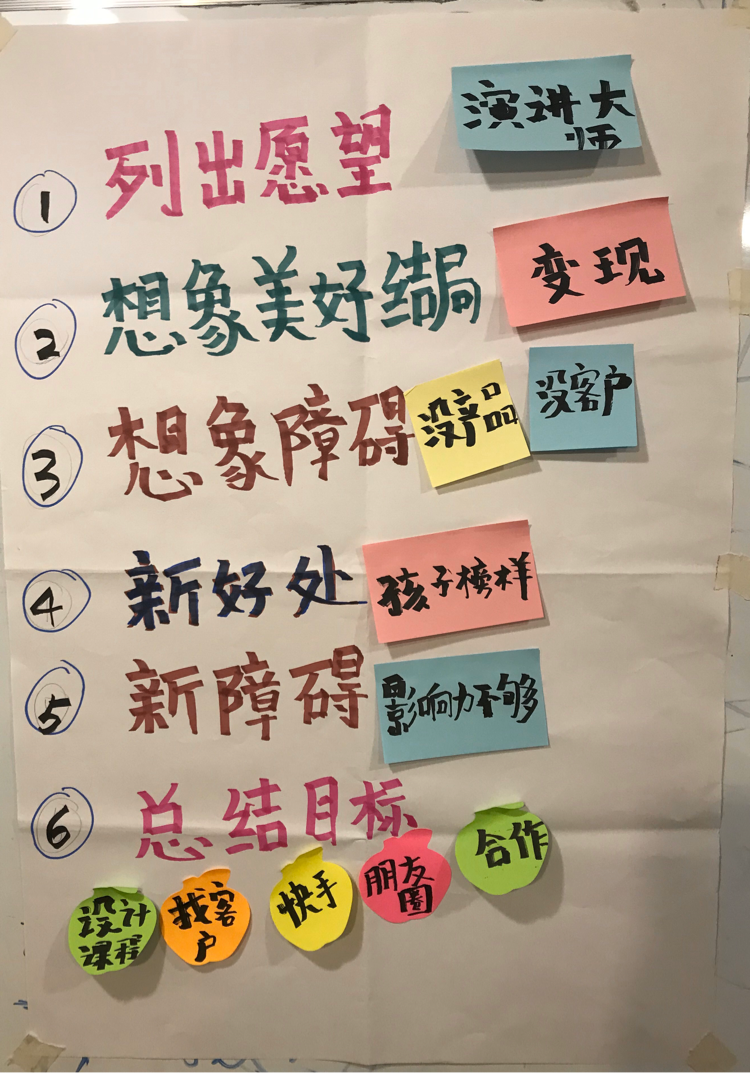 1 列出愿望
演讲大师
2 想象美好结局
变现
3 想象障碍
没产品
没客户
4 新好处
孩子榜样
5 新障碍
影响力不够
6 总结目标
设计
课程
找客
户
快手
朋友
圈
合作